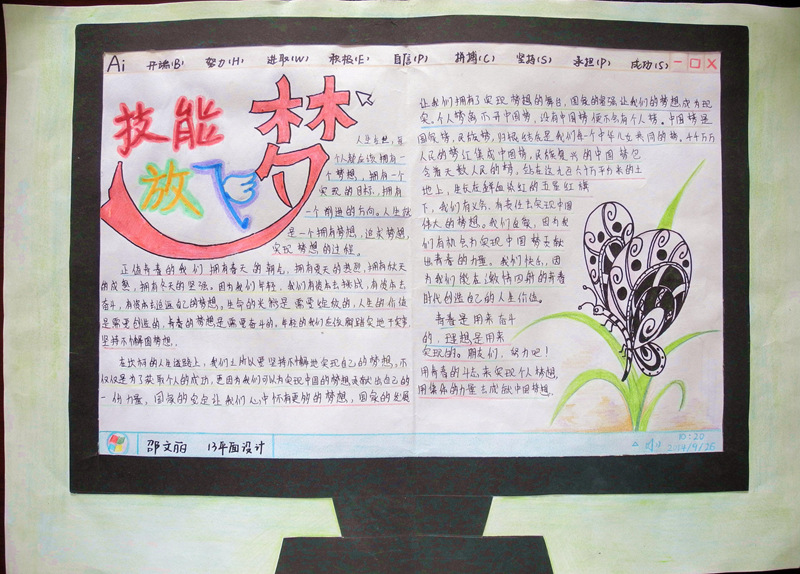 Ai 开端(B) 努力(H) 进取(W) 积极(E) 自信(P) 拼搏(C) 坚持(S) 承担(P) 成功(S)
技能
放飞
梦
人生在世,每
个人都应该拥有一
个梦想,拥有一个
实现的目标,拥有
一个前进的方向。人生就
是一个拥有梦想,追求梦想,
实现梦想的过程。
正值青春的我们拥有春天的朝气,拥有夏天的热烈,拥有秋天
的成熟,拥有冬天的坚强。因为我们年轻,我们有资本去挑战,有资本去
奋斗,有资本去追逐自己的梦想。生命的光辉是需要绽放的,人生的价值
是需要创造的,青春的梦想是需要奋斗的。年轻的我们应该脚踏实地于实實,
坚持不懈圆梦想.
在坎坷的人生道路上,我们之所以要坚持不懈地实现自己的梦想。不
仅仅是为了获取个人的成功,更因为我们可以为实现中国的梦想贡献出自己的
一份力量,国家的安定让我们心中怀有更多的梦想,国家的发展
让我们拥有了实现梦想的舞台,国家的富强让我们的梦想成为现
实。个人梦离不开中国梦,没有中国梦便不会有个人梦。中国梦是
国家梦,民族梦,归根结底是我们每一个中华儿女共同的梦。千千万万
人民的梦汇集成中国梦,民族复兴的中国梦包
含着无数人民的梦,站在这九百六十万平方米的土
地上,坐拟在鲜血染红的五星红旗
下,我们有义务,有责任去实现中国
伟人的梦想。我们自豪,因为我
们有机会为实现中国梦贡献
出青春的力量。我们快乐,因
为我们能在激情四射的青春
时代创造自己的人生价值。
青春是用来奋斗
的,理想是用来
实现的。朋友们,努力吧!
用青春的斗志来实现个人梦想,
用集体的力量去成就中国梦想.
邵文丽 13平面设计
10:20
2014/9/26